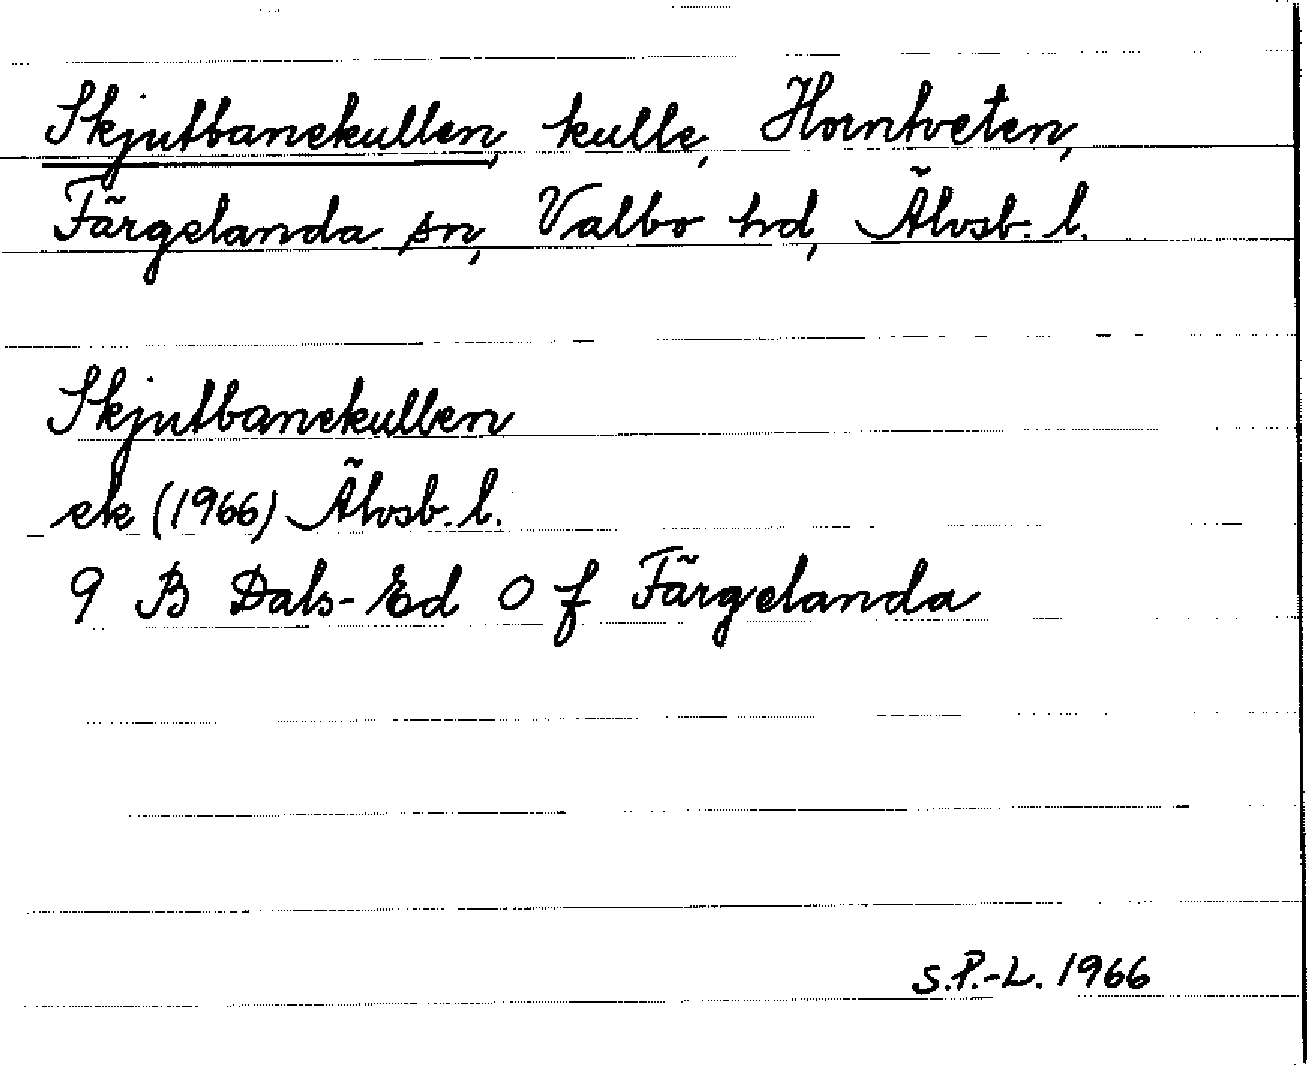 Skjutbanekullen, kulle, Horntveten,
Färgelanda sn, Valbo hd, Älvsb. l.
Skjutbanekullen
ek (1966) Älvsb. l.
9 B Dals-Ed O f Färgelanda
S.P.-L. 1966